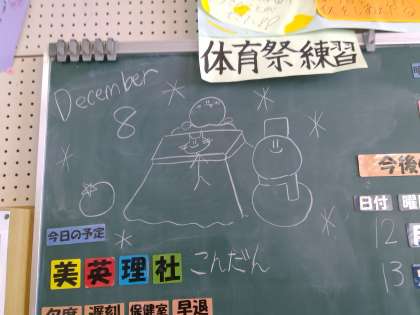 体育祭練習
December
8
今後の
今日の予定
日付 曜
美英理社 こんだん
12 月
13
欠席 遅刻 保健室 早退